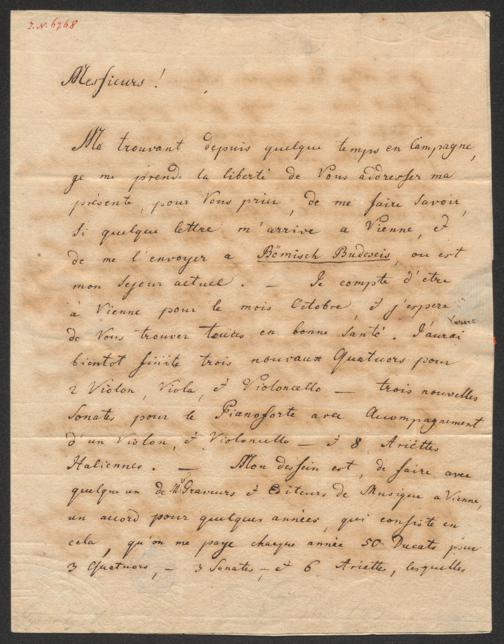 J.N. 6768
Messieurs!
Me trouvant depuis quelque temps en Campagne,
je me prend la liberté de Vous addresser ma
présente, pour Vous prier, de me faire savoir,
si quelque lettre m'arrive a Vienne, et
de me l'envoyer a Bömisch Budweis, ou est
mon sejour actuel. — Je compte d'etre
à Vienne pour le mois Octobre, et j'espere
de Vous trouver toutes en bonne santé. J'aurai
bientot finite trois nouveaux Quatuors pour
2 Violon, Viola, et Violoncello — trois nouvelles
Sonates pour le Pianoforte avec Accompagnement
d'un Violon, et Violoncello — et 8 Ariettes
Italiennes. — Mon dessein est, de faire avec
quelque un de Graveurs et Editeurs de Musique a Vienne,
un acord pour quelques années, qui consiste en
cela, qu'on me paye chaque année 50 Ducats pour
3 Quatuors, — 3 Sonates, — et 6 Ariettes, lesquelles